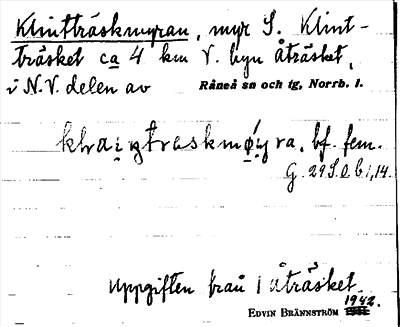 Klintträskmyran, myr S. Klint-
träsket ca 4 km V. byn Åträsket,
i N.V. delen av Råneå sn och tg, Norrb. l.
bf. fem.
G. 29 S.O. b. 1,14.
Uppgiften från Åträsket.
1942.
EDVIN BRÄNNSTRÖM